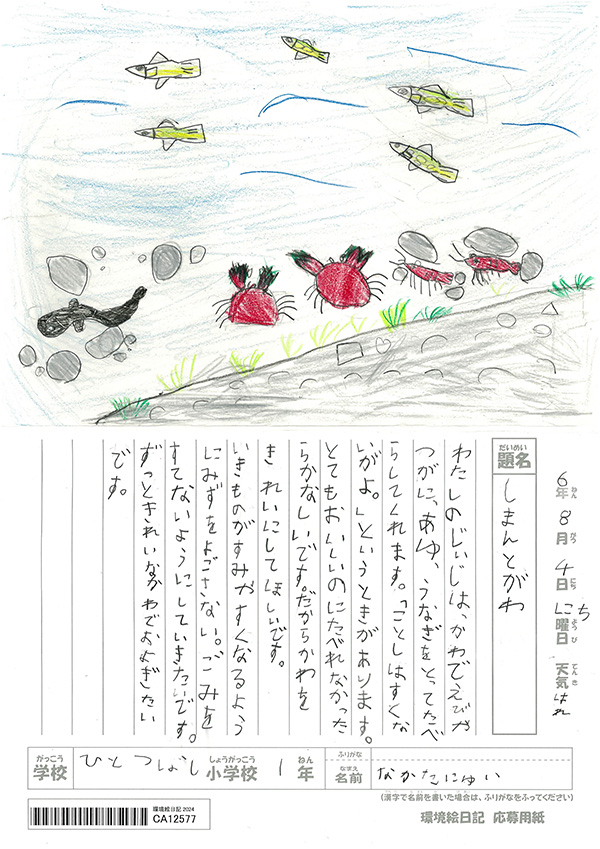 6年 8月 4日 にち曜日 天気 はれ
ねん がつ にち ようび てんき
だいめい
題名 しまんとがわ
わたしのじいじは、かわでえびや
つがに、あゆ、うなぎをとってたべ
らしてくれます。「ことしはすくな
いがよ。」というときがあります。
とてもおいしいのにたべれなかった
らかなしいです。だからかわを
きれいにしてほしいです。
いきものがすみやすくなるよう
にみずをよごさない。ごみを
すてないようにしていきたいです。
ずっときれいなかわでおよぎたい
です。
がっこう しょうがっこう ねん ふりがな
学校 ひとつばし 小学校 1年
なまえ
名前 なかたにゆい
(漢字で名前を書いた場合は、ふりがなをふってください)
環境絵日記 2024
CA12577
環境絵日記 応募用紙